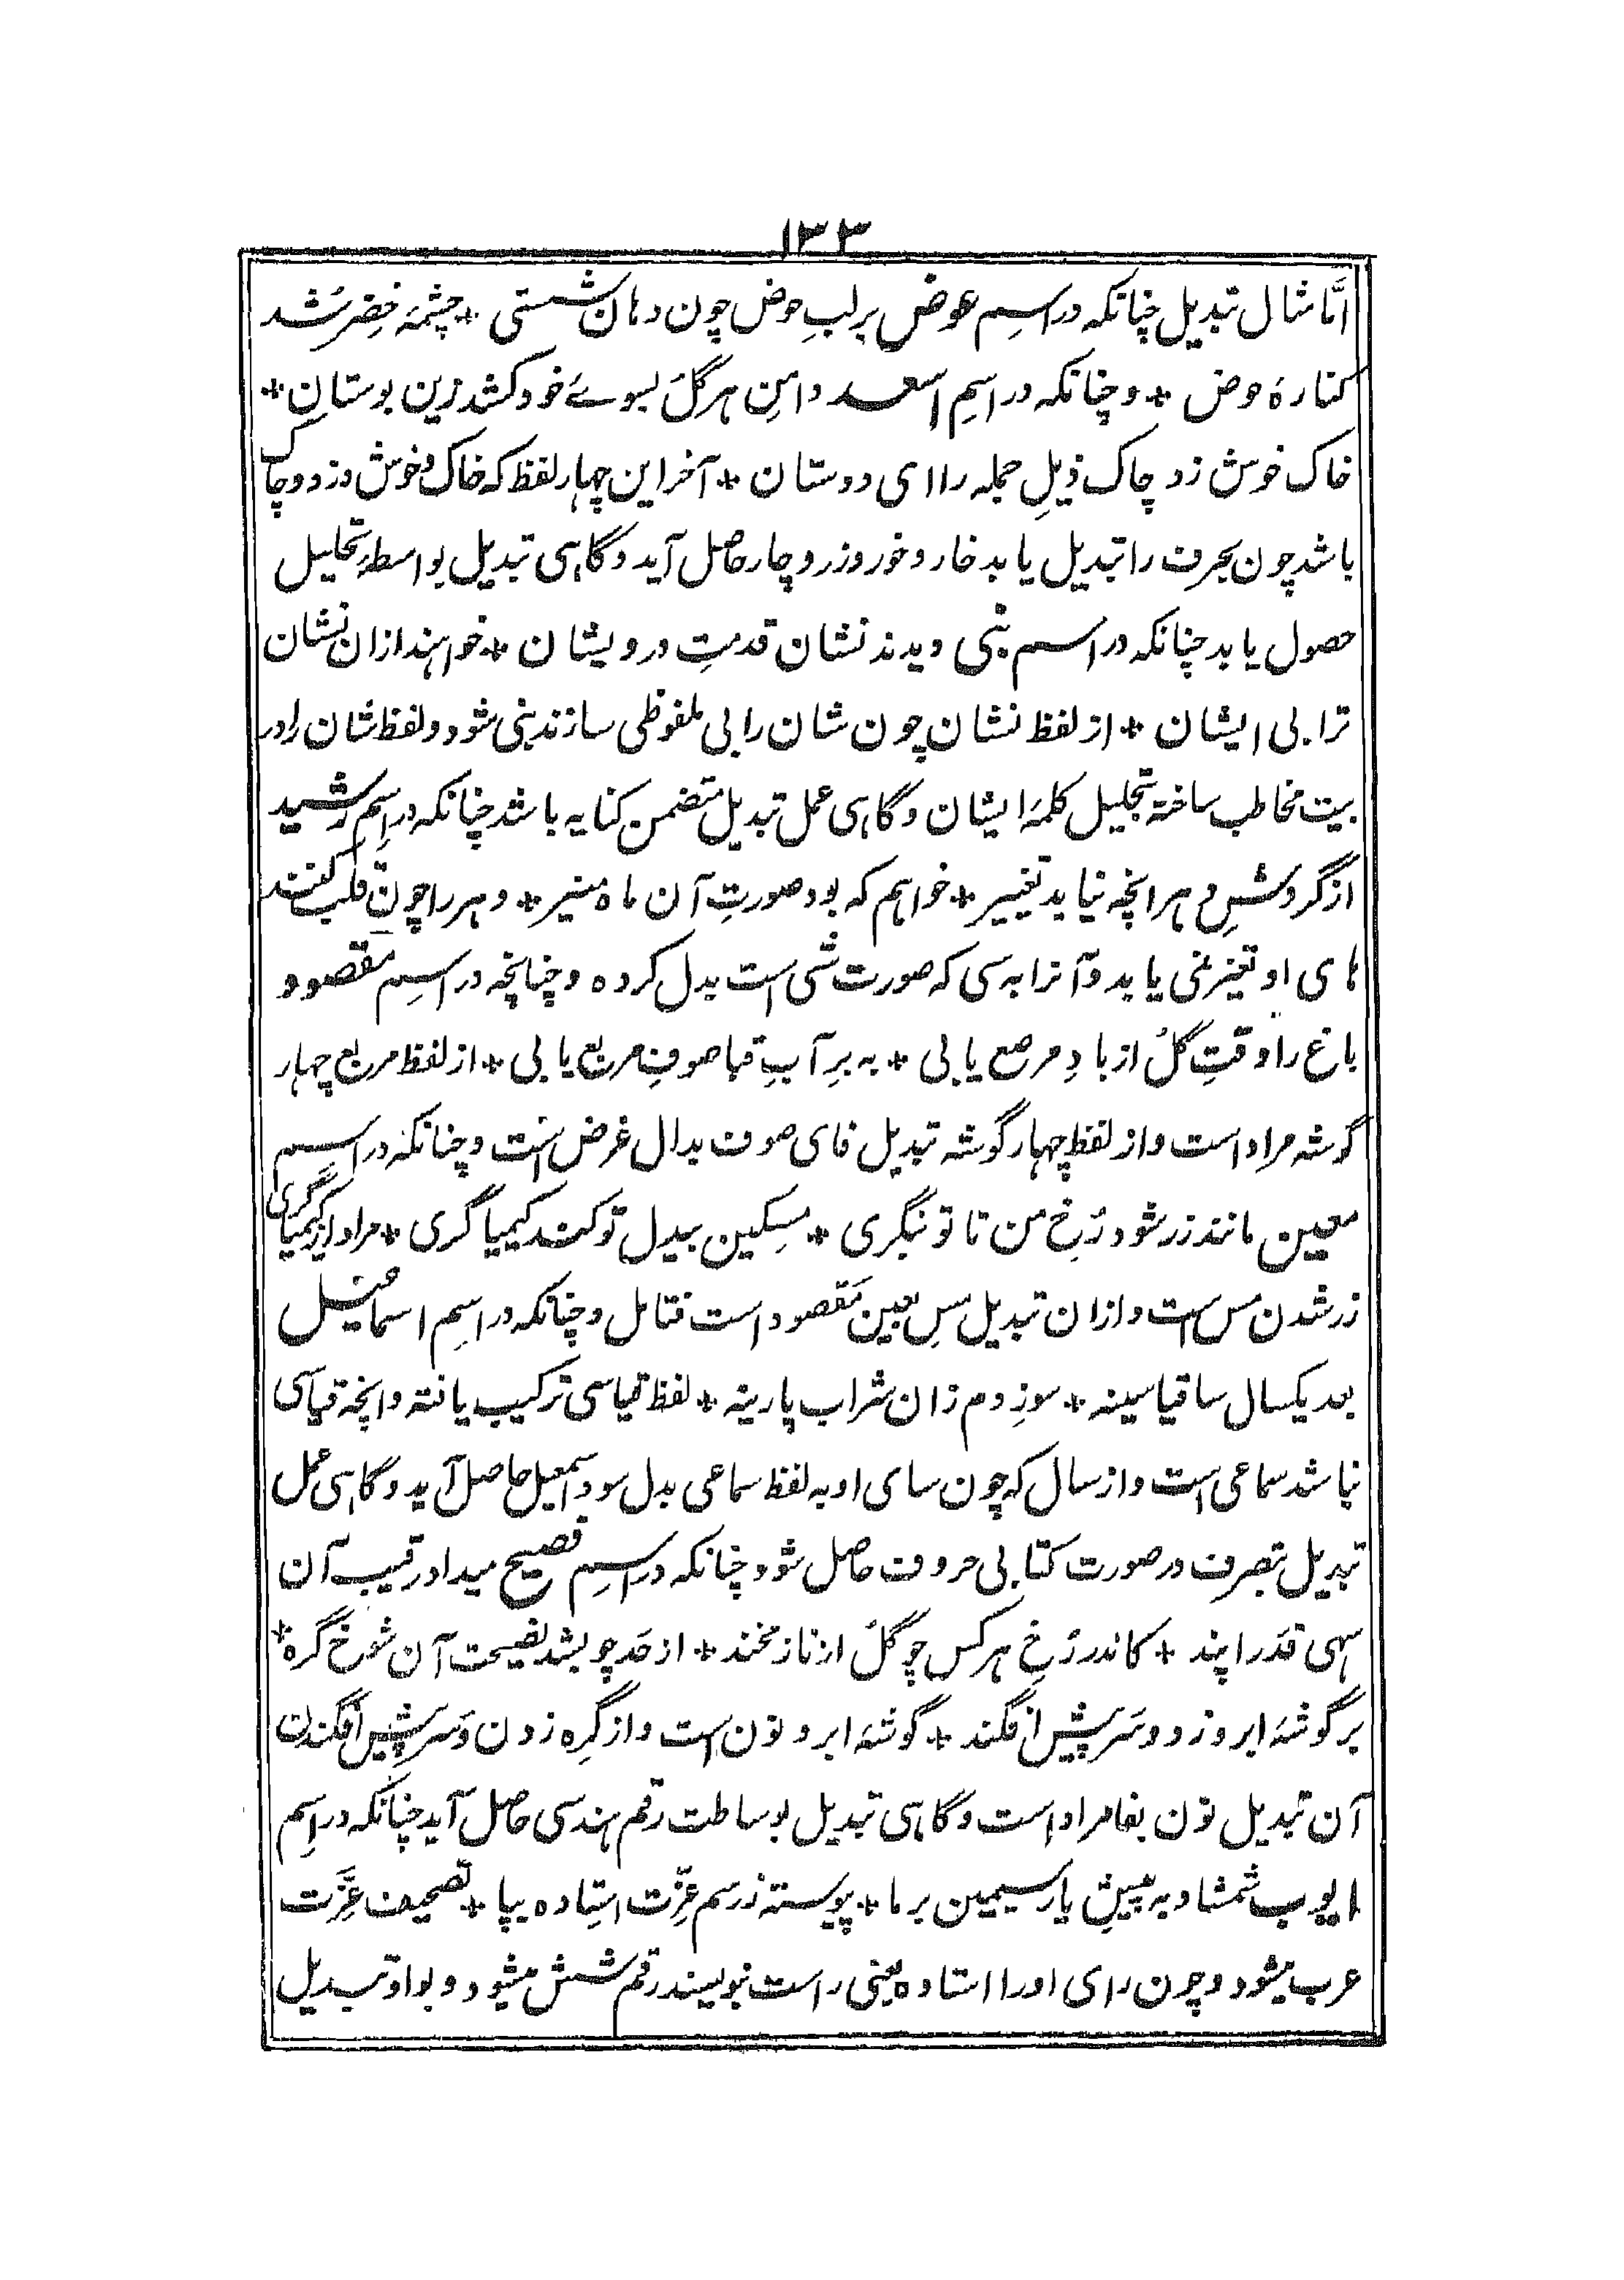 ۱۳۳
امّا مثال تبدیل چنانکه در اسمِ عوض برلبِ حوض چون دهان شستی * چشمهٔ خِضر شُد
کنارهٔ حوض * و چنانکه در اسمِ اسعد دامنِ هر گلَ بسوۓ خود کشد زین بوستان *
خاک خوش زد چاک ذیلِ جمله را ای دوستان * آخر این چهار لفظ که خاک و خوش و زد و چاک
باشد چون بحرف را تبدیل یابد خار و خور و زر و چار حاصل آید و گاہی تبدیل بواسطهٔ تحلیل
حصول یابد چنانکه در اسم نبی دیدند نشان قدمتِ درویشان * خواہند ازان نشان
ترا بی ایشان * از لفظ نشان چون شان را بی ملفوظی سازند نبی شود و لفظ شان را در
بیت مخاطب ساخته تحلیل کلمهٔ ایشان و گاہی عمل تبدیل متضمن کنایه باشد چنانکه در اسمِ رشید
از گردشِ دہر انچه نیابد تغییر * خواہم که بود صورتِ آن ماه منیر * دہر را چون قلب کنند
ہای او تغیر نمی یابد و آنرا به سی که صورت شی است بدل کرده و چنانچه در اسمِ مقصود
باغ را وقتِ گلُ از بادِ مرصع یابی * به برِ آبِ قبا صوفِ مربع یابی * از لفظ مربع چهار
گوشه مراد است و از لفظ چهار گوشه تبدیل فای صوف بدال غرض است و چنانکه در اسم
معین مانند زر شود رُخِ من تا تو نگری * مِسکین بیدل تو کند کیمیا گری * مراد از کیمیا گری
زر شدن مس است و ازان تبدیل مسِ بعین مَقصود است فتامل و چنانکه در اسمِ اسماعیل
بعد یکسال ساقیا سینه * سوزدم زان شراب پارینه * لفظ قیاسی ترکیب یافته و انچه قیاسی
نباشد سماعی است و از سال که چون سای او به لفظ سماعی بدل سود اسمعیل حاصل آید و گاہی عمل
تبدیل بتصرف در صورت کتابی حروف حاصل شود چنانکه در اسمِ فصیح میداد رقیب آن
سہی قدَرا پند * کاندر رُخِ هرکس چو گلُ از ناز مخند * از حَد چو بشد نصیحت آن شوخ گره *
بر گوشهٔ ابرو زد و سَر پیش افگند * گوشهٔ ابرو نون است و از گِره زدن و سَر پیش افگندن
آن تبدیل نون بفا مراد است و گاہی تبدیل بوساطت رقم ہندسی حاصل آید چنانکه در اسم
ایوب شمشاد به پیشِ یار سیمین بر ما * پیوسته ز رسم عِزّت استِاده بپا * تصحیف عِزَّت
عرب میشود و چون رای او را استاده یعنی راست نویسند رقم شش میشود و بواو تبدیل